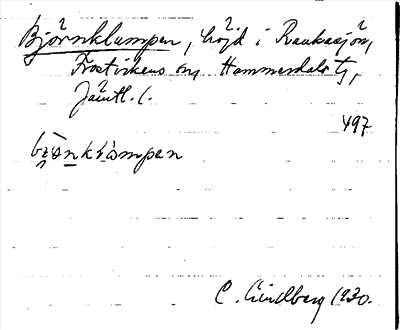 Björnklumpen, höjd i Rankasjön,
Frostvikens sn, Hammerdals tg,
Jämtl. l.
497
C. Lindberg 1930.